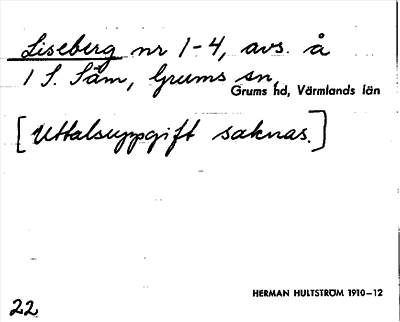 Liseberg nr 1-4, avs. å
1 S. Såm, Grums sn,
Grums hd, Värmlands län
[Uttalsuppgift saknas.]
HERMAN HULTSTRÖM 1910-12
22